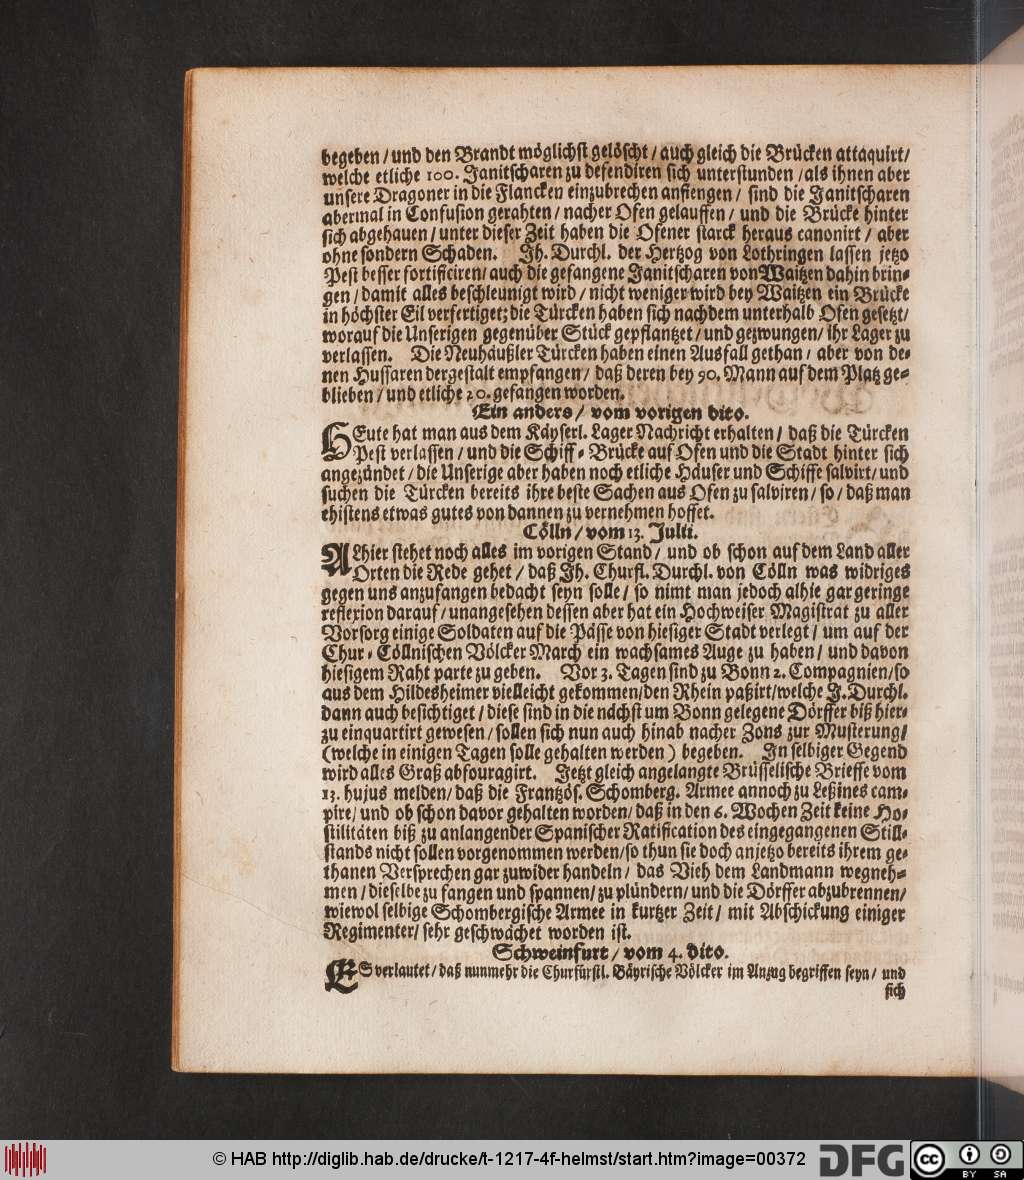 begeben / und den Brandt möglichst gelöscht / auch gleich die Brücken attaquirt /
welche etliche 100. Janitscharen zu defendiren sich unterstunden / als ihnen aber
unsere Dragoner in die Flancken einzubrechen anfiengen / sind die Janitscharen
abermal in Confusion gerahten / nacher Ofen gelauffen / und die Brücke hinter
sich abgehauen / unter dieser Zeit haben die Ofener starck heraus canonirt / aber
ohne sondern Schaden. Jh. Durchl. der Hertzog von Lothringen lassen jetzo
Pest besser fortificiren / auch die gefangene Janitscharen von Waitzen dahin brin-
gen / damit alles beschleunigt wird / nicht weniger wird bey Waitzen ein Brücke
in höchster Eil verfertiget; die Türcken haben sich nachdem unterhalb Ofen gesetzt /
worauf die Unserigen gegenüber Stück gepflantzet / und gezwungen / ihr Lager zu
verlassen. Die Neuhäußler Türcken haben einen Ausfall gethan / aber von de-
nen Hussaren dergestalt empfangen / daß deren bey 90. Mann auf dem Platz ge-
blieben / und etliche 20. gefangen worden.
Ein anders / vom vorigen dito.
HEute hat man aus dem Käyserl. Lager Nachricht erhalten / daß die Türcken
Pest verlassen / und die Schiff-Brücke auf Ofen und die Stadt hinter sich
angezündet / die Unserige aber haben noch etliche Häuser und Schiffe salvirt / und
suchen die Türcken bereits ihre beste Sachen aus Ofen zu salviren / so / daß man
ehistens etwas gutes von dannen zu vernehmen hoffet.
Cölln / vom 13. Julii.
ALhier stehet noch alles im vorigen Stand / und ob schon auf dem Land aller
Orten die Rede gehet / daß Jh. Churfl. Durchl. von Cölln was widriges
gegen uns anzufangen bedacht seyn solle / so nimt man jedoch alhie gar geringe
reflexion darauf / unangesehen dessen aber hat ein Hochweiser Magistrat zu aller
Vorsorg einige Soldaten auf die Pässe von hiesiger Stadt verlegt / um auf der
Chur-Cöllnischen Völcker March ein wachsames Auge zu haben / und davon
hiesigem Raht parte zu geben. Vor 3. Tagen sind zu Bonn 2. Compagnien / so
aus dem Hildesheimer vielleicht gekommen / den Rhein paßirt / welche J. Durchl.
dann auch besichtiget / diese sind in die nächst um Bonn gelegene Dörffer biß hier-
zu einquartirt gewesen / sollen sich nun auch hinab nacher Zons zur Musterung /
(welche in einigen Tagen solle gehalten werden) begeben. In selbiger Gegend
wird alles Graß abfouragirt. Jetzt gleich angelangte Brüsselische Brieffe vom
13. hujus melden / daß die Frantzös. Schomberg. Armee annoch zu Leßines cam-
pire / und ob schon davor gehalten worden / daß in den 6. Wochen Zeit keine Ho-
stilitäten biß zu anlangender Spanischer Ratification des eingegangenen Still-
stands nicht sollen vorgenommen werden / so thun sie doch anjetzo bereits ihrem ge-
thanen Versprechen gar zuwider handeln / das Vieh dem Landmann wegneh-
men / dieselbe zu fangen und spannen / zu plündern / und die Dörffer abzubrennen /
wiewol selbige Schombergische Armee in kurtzer Zeit / mit Abschickung einiger
Regimenter / sehr geschwächet worden ist.
Schweinfurt / vom 4. dito.
ES verlautet / daß nunmehr die Churfürstl. Bäyrische Völcker im Anzug begriffen seyn / und
sich
© HAB http://diglib.hab.de/drucke/t-1217-4f-helmst/start.htm?image=00372
DFG
cc BY SA